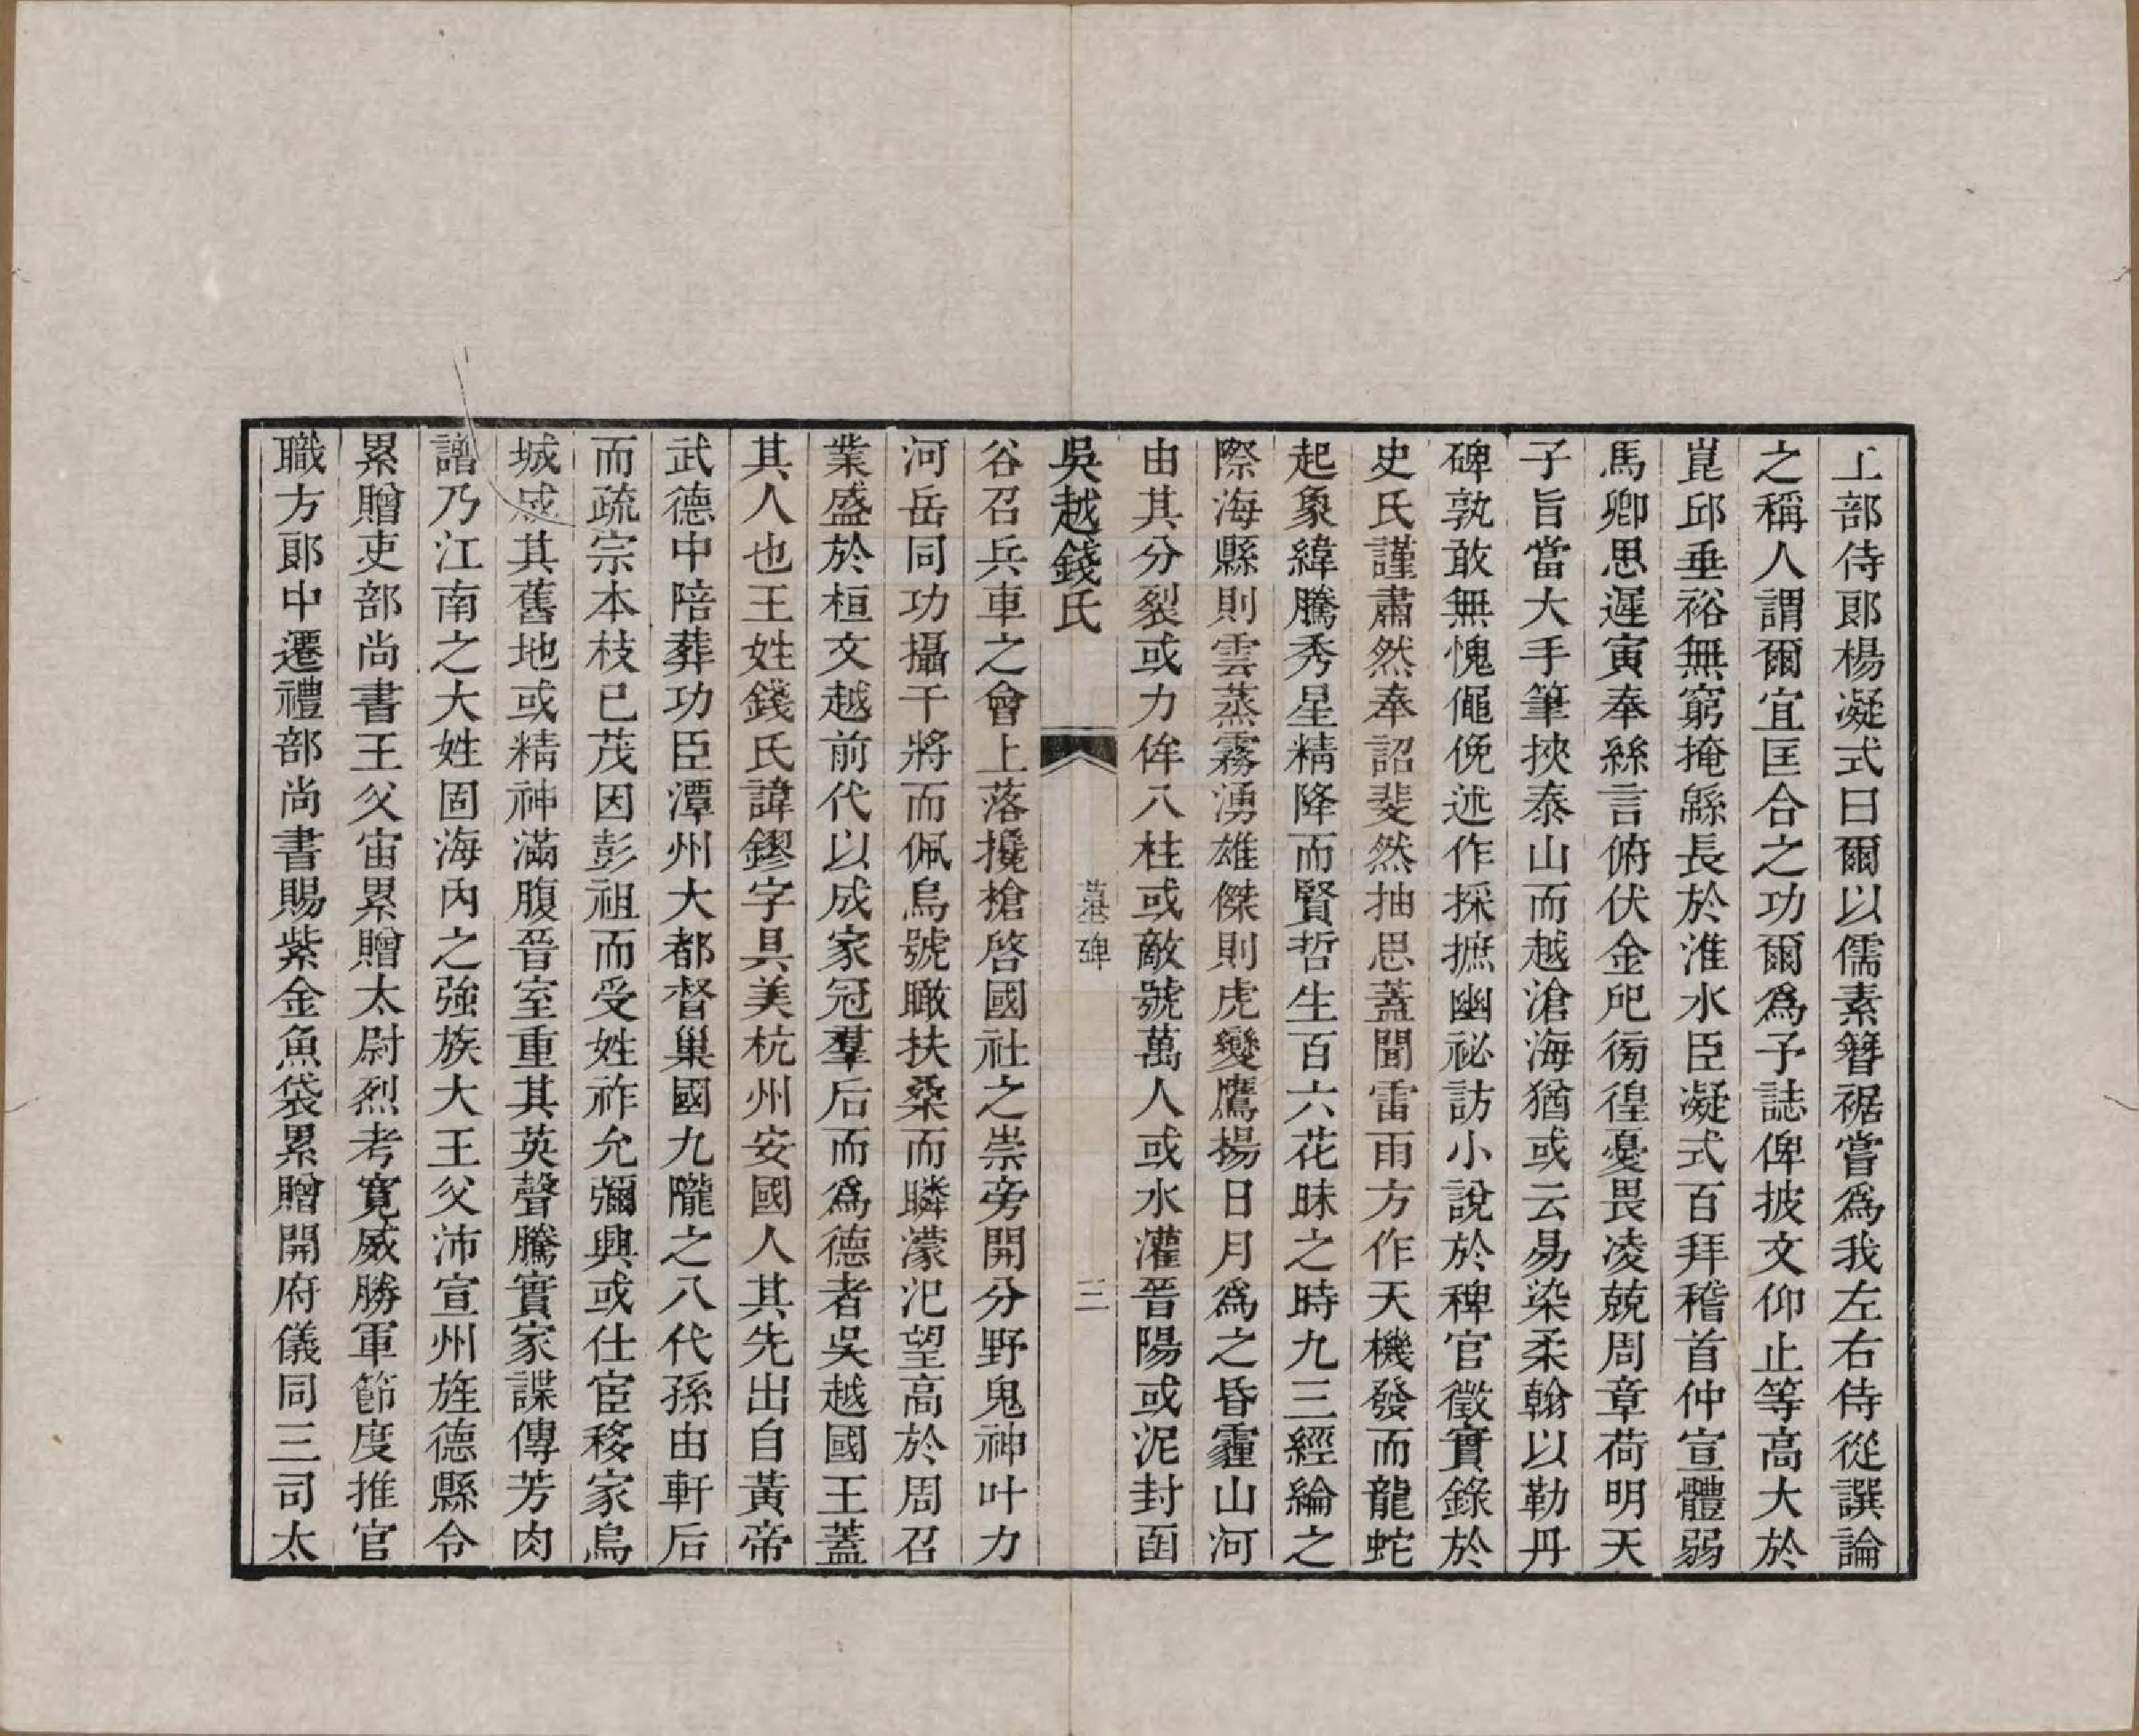 工部侍郎楊凝式曰爾以儒素簪裾嘗爲我左右侍從譔論
之稱人謂爾宜匡合之功爾爲予誌俾披文仰止等高大於
崑邱垂裕無窮掩緜長於淮水臣凝式百拜稽首仲宣體弱
馬卿思遲寅奉絲言俯伏金戺徬徨憂畏凌兢周章荷明天
子旨當大手筆挾泰山而越滄海猶或云易染柔翰以勒丹
碑孰敢無愧僶俛述作採摭幽祕訪小說於稗官徵實錄於
史氏謹肅然奉詔斐然抽思蓋聞雷雨方作天機發而龍蛇
起象緯騰秀星精降而賢哲生百六花昧之時九三經綸之
際海縣則雲蒸霧湧雄傑則虎變鷹揚日月爲之昏霾山河
由其分裂或力侔八柱或敵號萬人或水灌晉陽或泥封函
吳越錢氏
墓碑
三
谷召兵車之會上落攙槍啓國社之祟旁開分野鬼神叶力
河岳同功攝干將而佩烏號瞰扶桑而瞵濛汜望高於周召
業盛於桓文越前代以成家冠羣后而爲德者吳越國王蓋
其人也王姓錢氏諱鏐字具美杭州安國人其先出自黃帝
武德中陪葬功臣潭州大都督巢國九隴之八代孫由軒后
而疏宗本枝已茂因彭祖而受姓祚允彌興或仕宦移家烏
城成其舊地或精神滿腹晉室重其英聲騰實家諜傳芳肉
譜乃江南之大姓固海內之強族大王父沛宣州旌德縣令
累贈吏部尚書王父宙累贈太尉烈考寬威勝軍節度推官
職方郎中遷禮部尚書賜紫金魚袋累贈開府儀同三司太